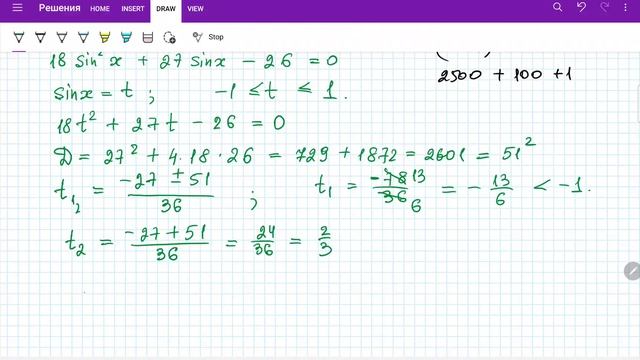 Решения HOME INSERT DRAW VIEW
Stop
18 sin² x + 27 sinx − 26 = 0
2500 + 100 + 1
sinx = t ; −1 ≤ t ≤ 1.
18t² + 27t − 26 = 0
D = 27² + 4·18·26 = 729 + 1872 = 2601 = 51²
t₁,₂ = (−27 ± 51)/36 ; t₁ = −78/36 13/6 = −13/6 < −1.
t₂ = (−27 + 51)/36 = 24/36 = 2/3